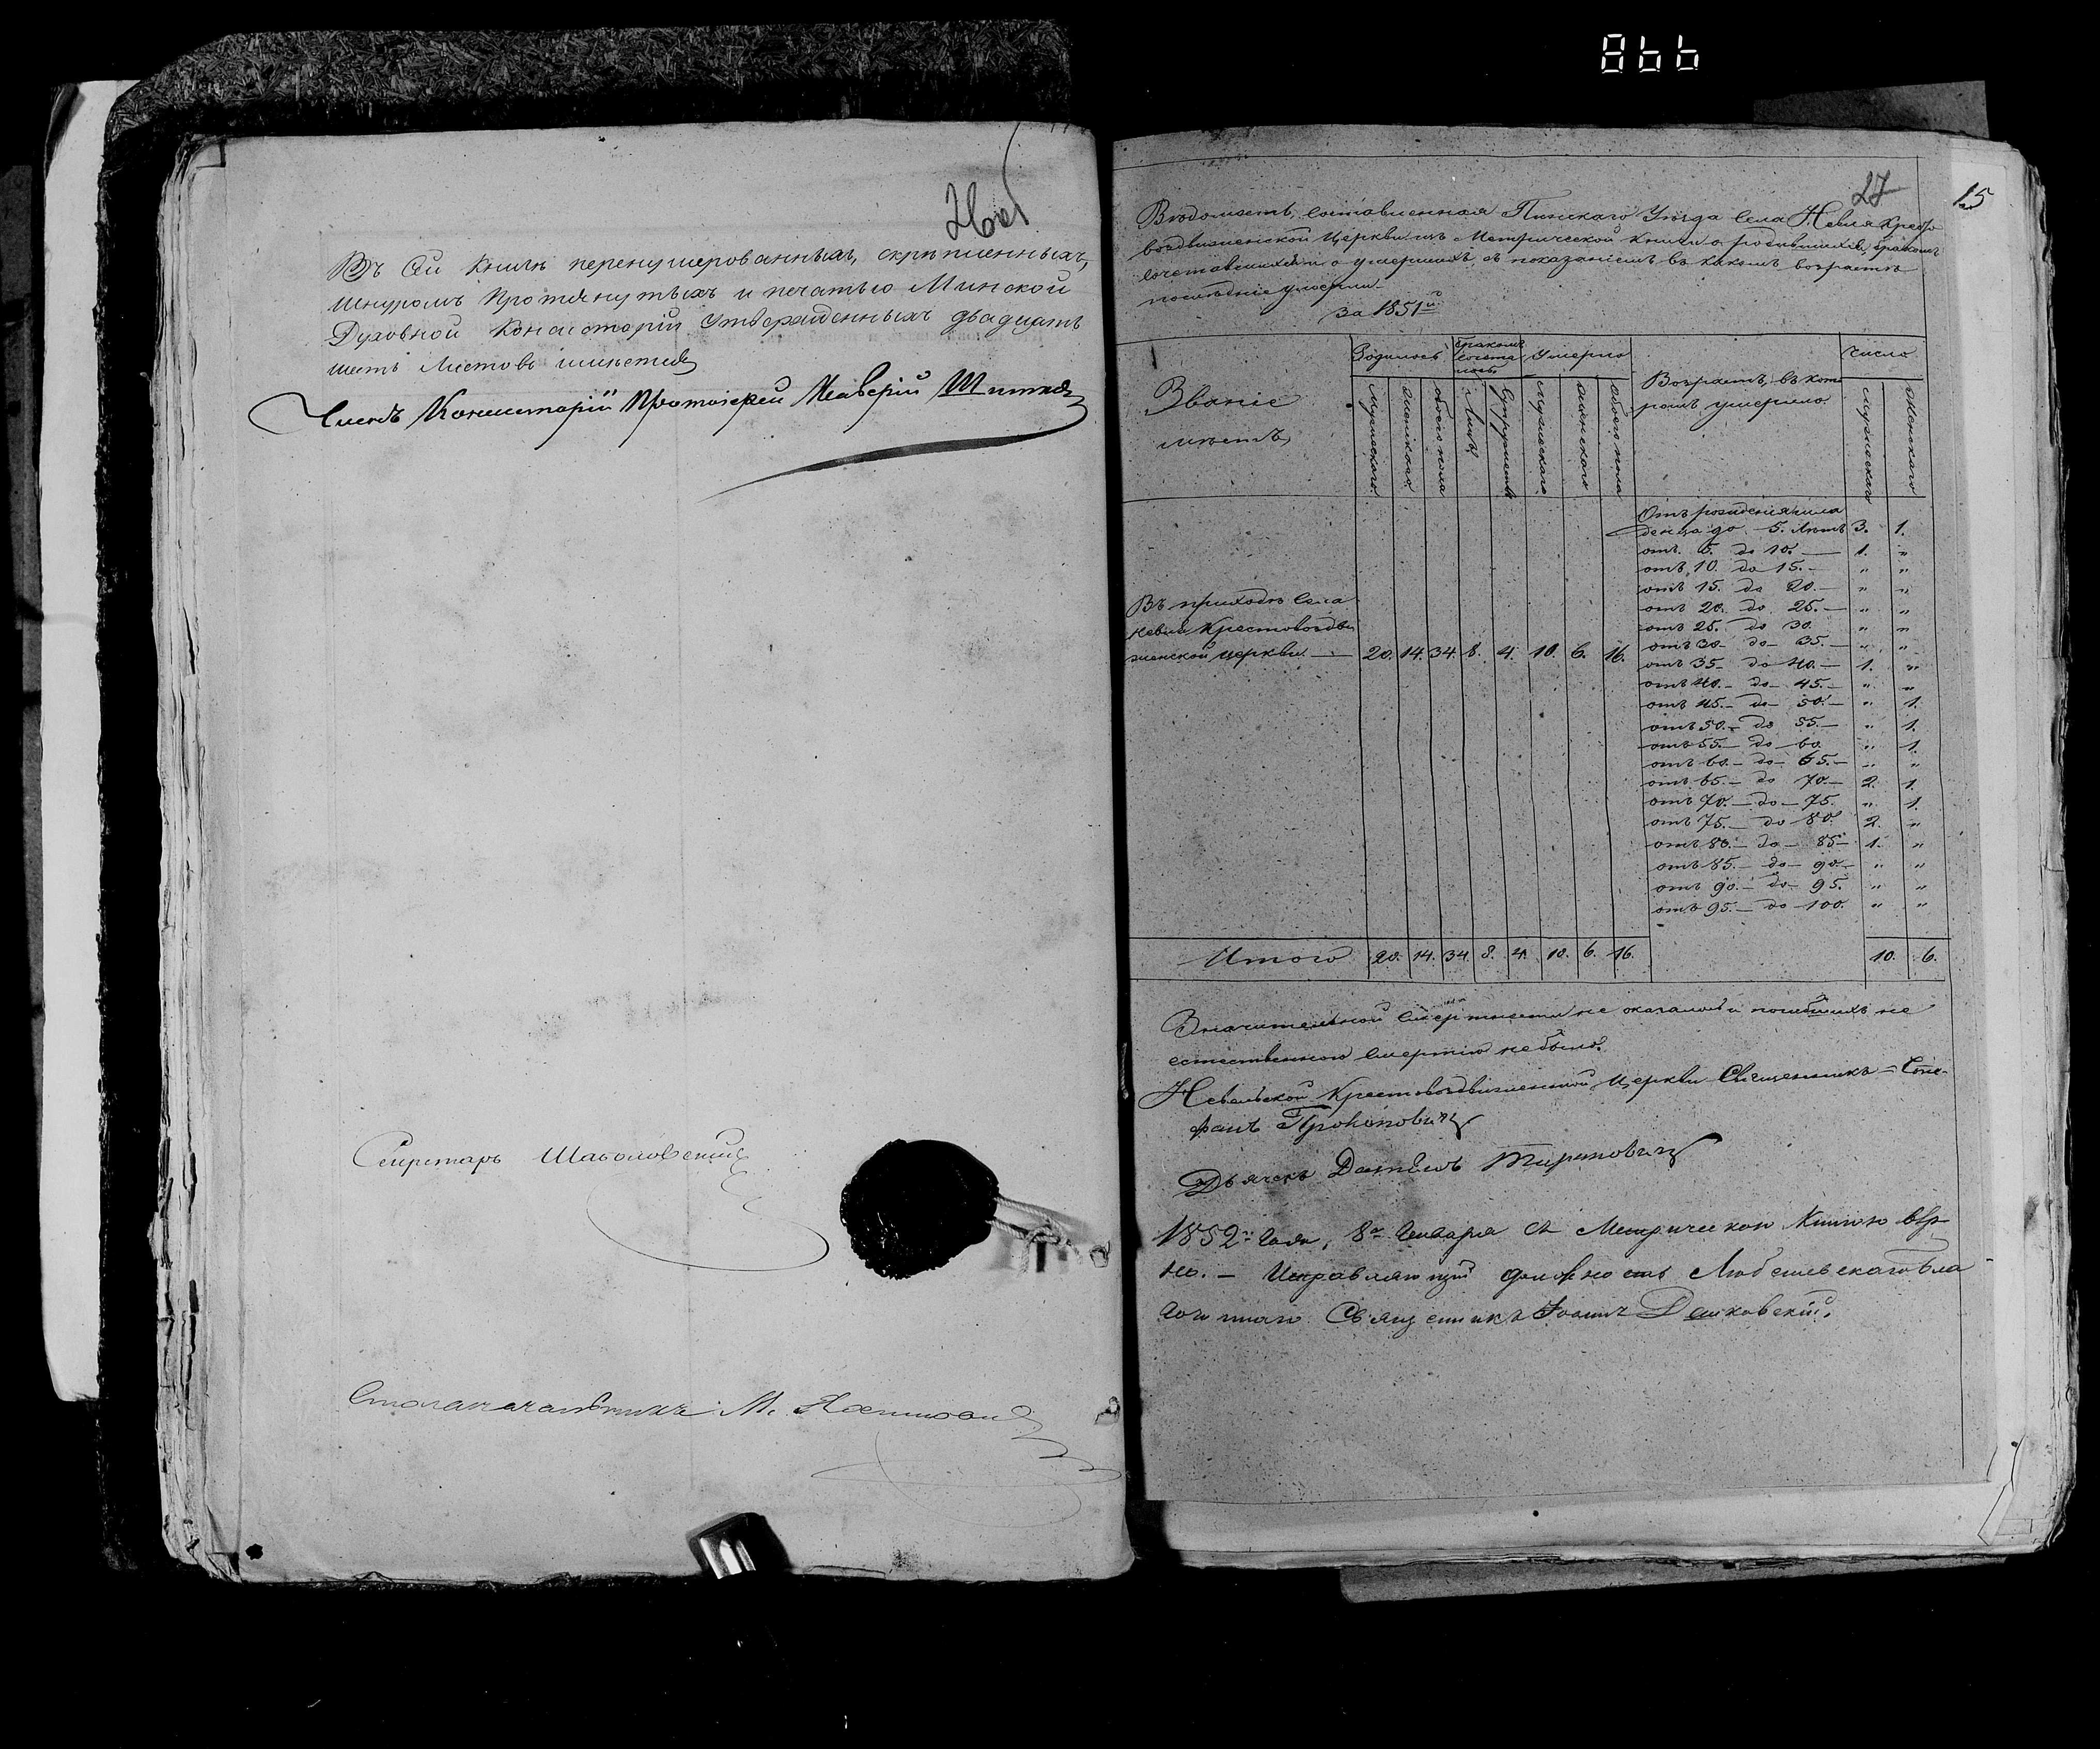 866
26 об
Въ сей книгѣ перенумерованныхъ, скрѣпленныхъ,
шнуромъ протянутыхъ и печатью Минской
Духовной Консисторіи утвержденныхъ двадцать
шесть листовъ имѣется
Членъ Консисторіи Протоіерей
Секретарь
Столоначальникъ М.
27
15
Вѣдомость, составленная Пинскаго Уѣзда села Невля Кресто
воздвиженской Церкви изъ Метрической книги о родившихся, бракомъ
сочетавшихся и о умершихъ съ показаніемъ въ какомъ возрастѣ
послѣдніе умерли
за 1851й
Званіе мѣстъ
Родилось
Бракомъ сочеталось
Умерло
Возрастъ, въ которомъ умерло
Число
Мужескаго
Женскаго
Обоего пола
Лицъ
Супружествъ
Мужескаго
Женскаго
Обоего пола
Мужескаго
Женскаго
Отъ рожденія мла
денца до 5. лѣтъ 3. 1.
отъ 5. до 10. — 1. „
отъ 10. до 15. — „ „
отъ 15. до 20. — „ „
отъ 20. до 25. — „ „
отъ 25. до 30. „ „
отъ 30 — до — 35. — „ „
отъ 35. — до 40. — 1. „
отъ 40. — до — 45. — „ „
отъ 45. — до — 50. — „ 1.
отъ 50. — до 55. — „ 1.
отъ 55. — до — 60. „ 1.
отъ 60. — до — 65. — „ „
отъ 65. — до — 70. — 2. 1.
отъ 70. — до — 75. „ 1.
отъ 75. — до 80. 2. „
отъ 80. — до — 85 — 1. „
отъ 85. — до — 90. — „ „
отъ 90. — до — 95. „ „
отъ 95. — до — 100. „ „
Въ приходѣ села
Невля Крестовоздви
женской церкви — 20. 14. 34. 8. 4. 10. 6. 16.
Итого 20. 14. 34. 8. 4. 10. 6. 16. 10. 6.
Значительной смертности не оказалось и погибшихъ не
естественною смертію не было.
Невельской Крестовоздвиженской Церкви Священникъ — Сте-
фанъ Прокоповичъ
Дьячекъ
1852го Года, 8го Января съ Метрическою Книгою вѣр
но. — Исправляющій должность Любешевскаго Бла
гочиннаго Священникъ Іоаннъ